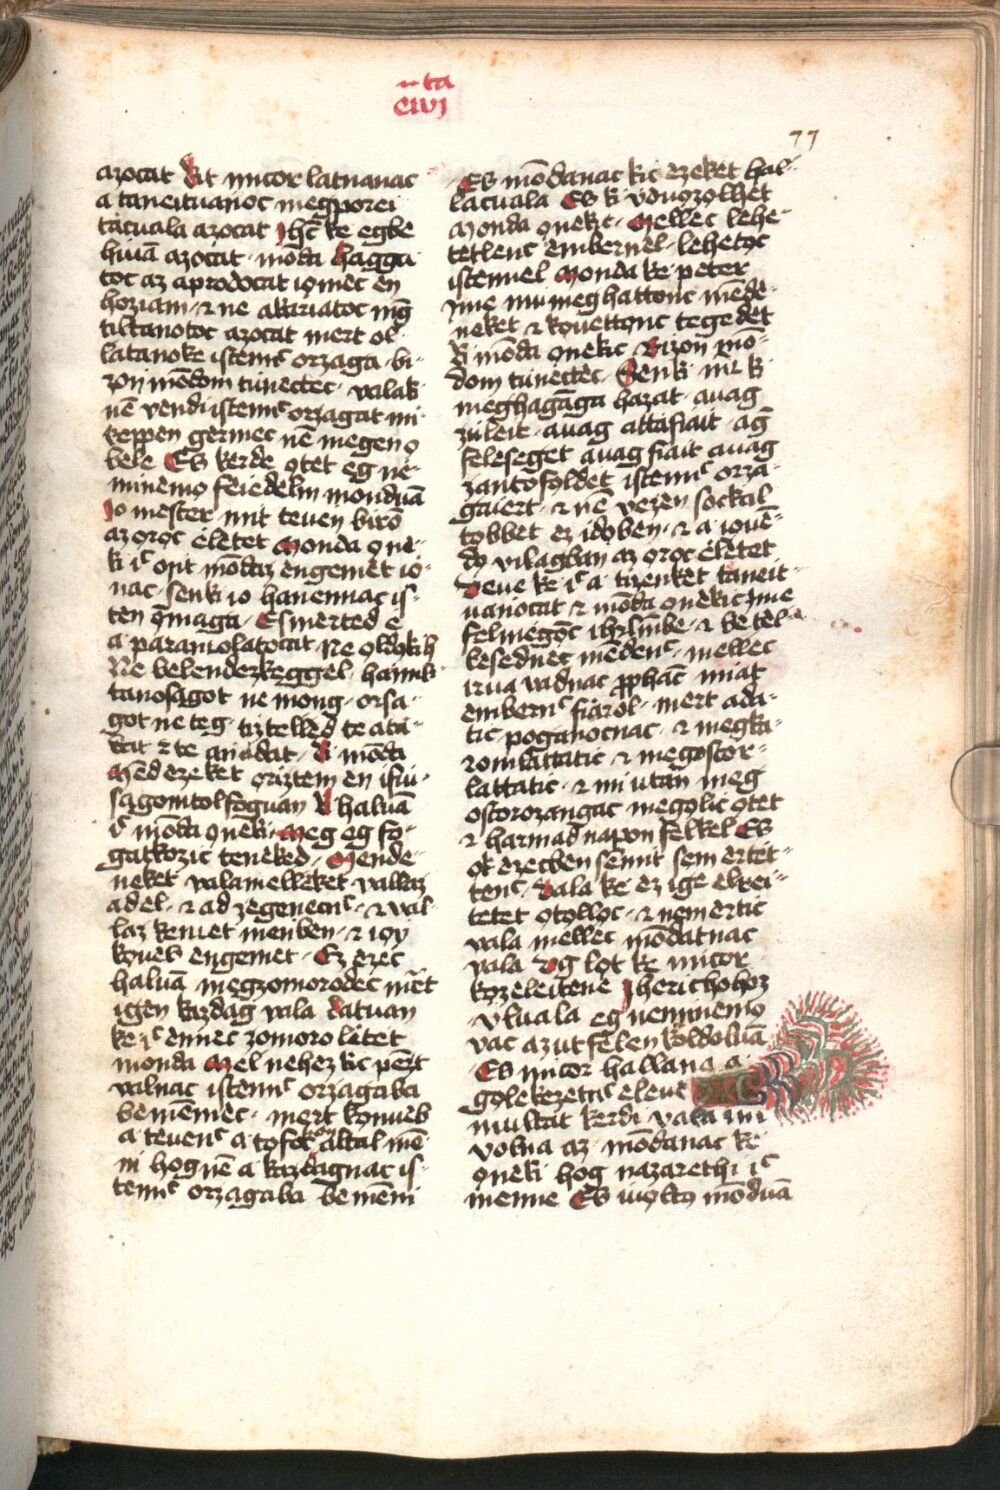 ta
77
azocat kit micor latnanac
a taneituanoc megporei
tacuala azocat Jhc̄ ke egbe
hiuā azocat · mōda hagga
toc az aprodocat iomec en
hoziam · ⁊ ne akariatoc mḡ
tiltanotoc azocat mert ol
latanoke istenn̄c orzaga · bi
zon mōdom tūnectec · valak
nē vendi istenn̄c orzagat mi
keppen germec nē megen o
bele Es kerde otet eg ne
minemo feiedelm monduā
Jo mester mit teuen biro
az oroc eletet Monda one
ki ic̄ mit mōdaz engemet io
nac · senki io hanemac is
ten ōmaga · Esmerted e
a paranc̄olatocat Ne oldokil'
Ne belendezkeggel · hamis
tanosagot ne mong · orsa
got ne teg · tiztelled te ata
dat ⁊ te anadat · Ki mōda
Mēd ezeket oriztem en ifiu
sagomtol foguan Kit haluā
ic̄ mōda oneki · Meg eg fo
gatkozic teneked · Mende
neket valamelleket vallaz
ad el · ⁊ ad zegenecn̄c · ⁊ val
laz kencet menben · ⁊ ioy
koues̄ engemet · Ez ezec
haluā megzomorodec mēt
igen kazdag vala Latuan
ke ic̄ ennec zomoro letet
monda Mel nehez kic pēzt
valnac istenn̄c orzagaba
bemēnec · mert konueb
a teuen̄c a tofokan altal mē
ni hog nē a kazdagnac is
tenn̄c orzagaba bemēni
Es mōdanac kic ezeket hal
lacuala Es ki vduozolhet
Monda onekic · Mellec lehe
tetlenc embernel · lehetoc
istennel Monda ke peter
Jme mu meghattonc mēde
neket ⁊ kouettonc tegedet
Ki mōda onekic Bizon mō
dom tūnectec · Senki nic̄ ki
meghagāga hazat · auag
zuleit · auag attafiait · aḡ
feleseget auag fiait auag
zantofoldet istenn̄c orza
gaiert · ⁊ nē vezen sockal
tobbet ez idoben · ⁊ a iouē
do vilagban az oroc eletet
Veue ke ic̄ a tizenket taneit
uanocat ⁊ mōda onekic Jme
felmēgōc ihrl̄mbe · ⁊ betel
kesednec mēdenc · mellec
irua vadnac pphāc miat
embern̄c fiarol · mert ada
tic poganocnac · ⁊ megka
romlattatic ⁊ megostor
lattatic · ⁊ mi utan meg
ostorozangac megolic otet
⁊ harmad napon felkel Es
ok ezecben semit sem ertet
tenc · Vala ke ez ige elrei
tetet otolloc · ⁊ nem ertic
vala mellec mōdatnac
vala Vg lot ke micor
kozeleitene Jherichohoz
vluala eg neminemo
vac az ut felen koldoluā
Es micor hallana a
golekezetn̄c eleue
multat kerdi vala mi
volna az · mōdanac ke
oneki hog nazarethi ic̄
menne Es iuolto mōduā